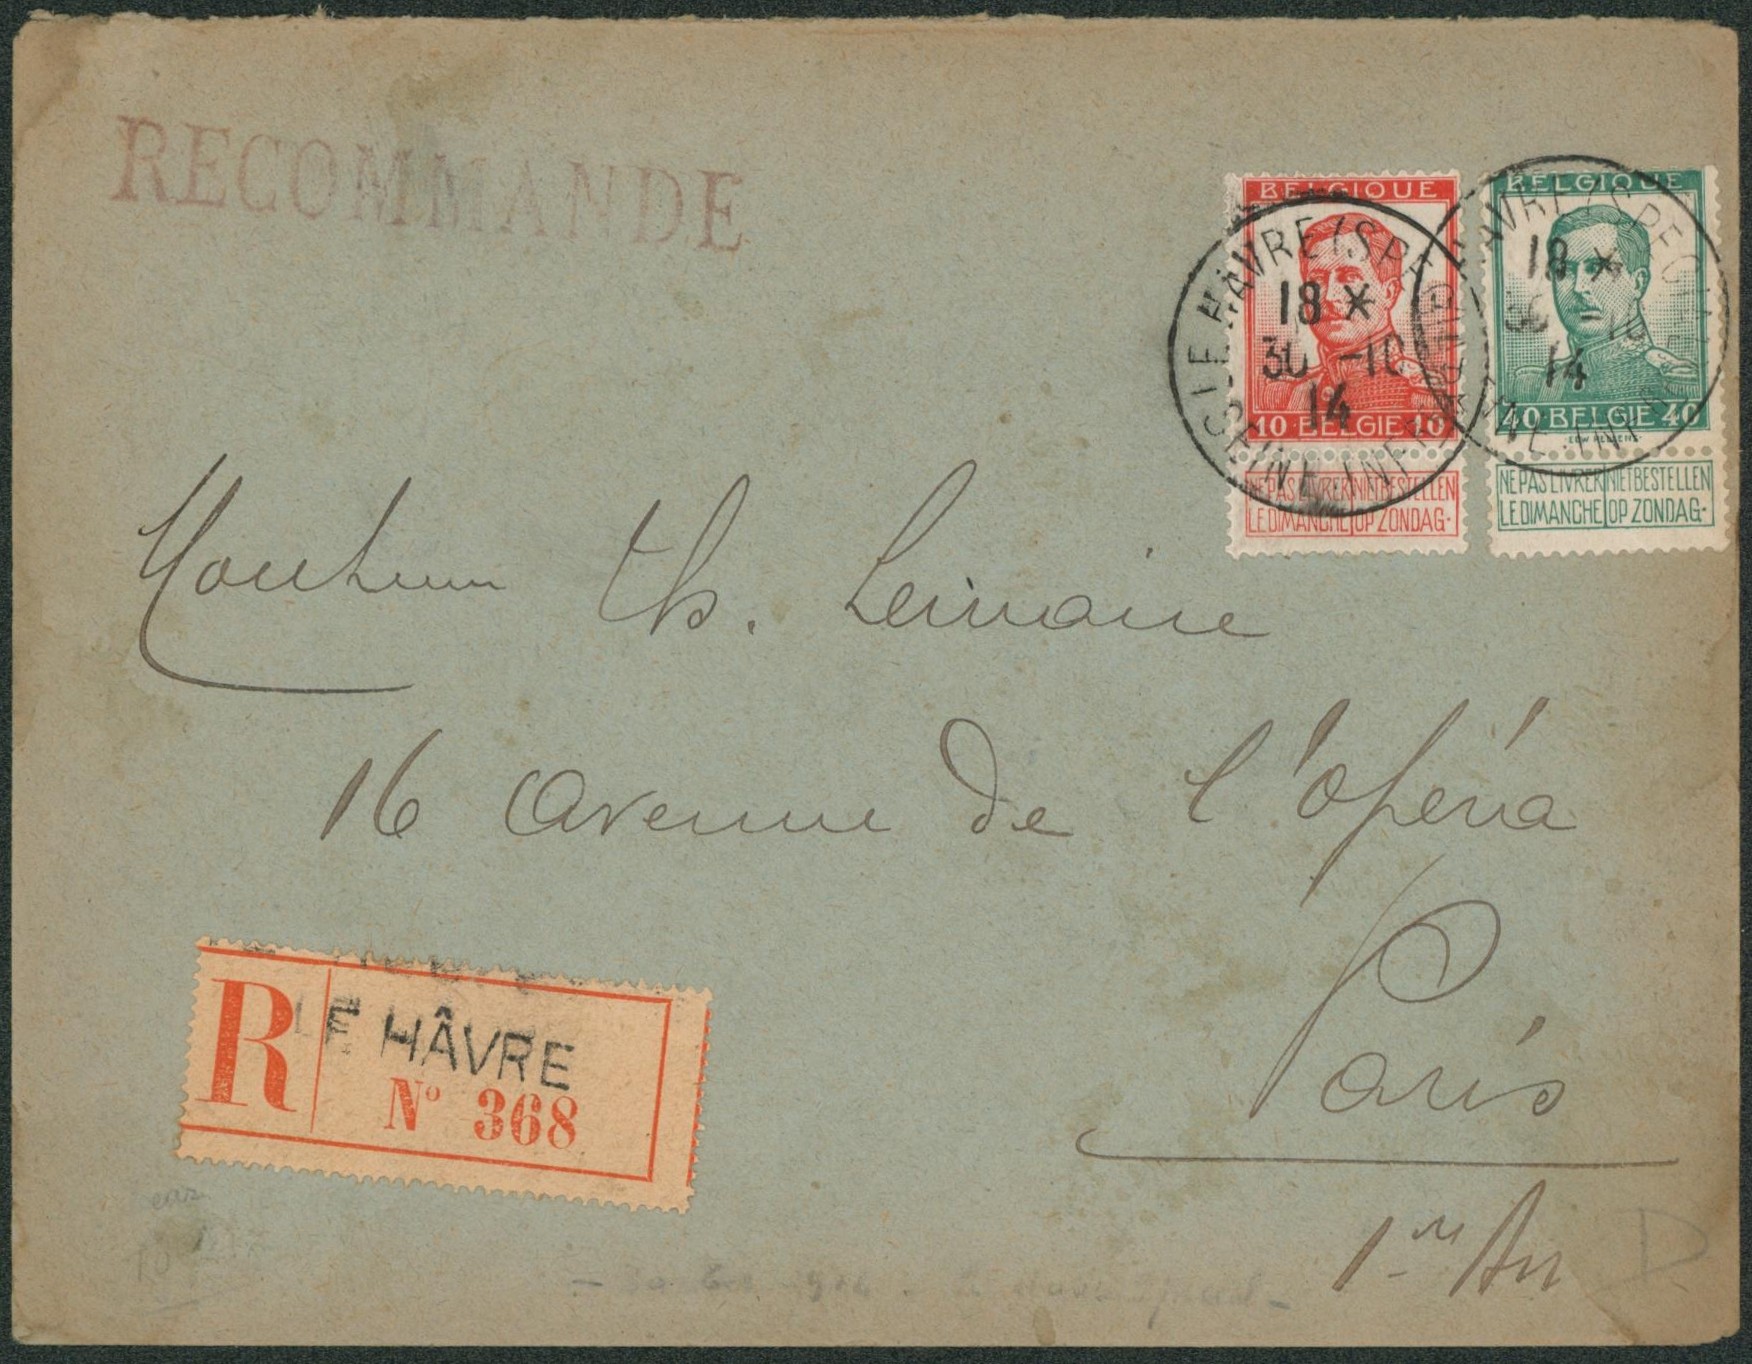 RECOMMANDE
BELGIQUE
10 BELGIE 10
NE PAS LIVRER LE DIMANCHE
NIET BESTELLEN OP ZONDAG.
BELGIQUE
40 BELGIE 40
NE PAS LIVRER LE DIMANCHE
NIET BESTELLEN OP ZONDAG.
LE HÂVRE (SPÉCIAL)
18 *
30 -10
14
(SEINE INFRE)
HÂVRE (SPECIAL
18 *
30 -10
14
Monsieur Th. Lemaire
16 Avenue de l'Opéra
Paris
1er Arr
R
LE HÂVRE
N° 368